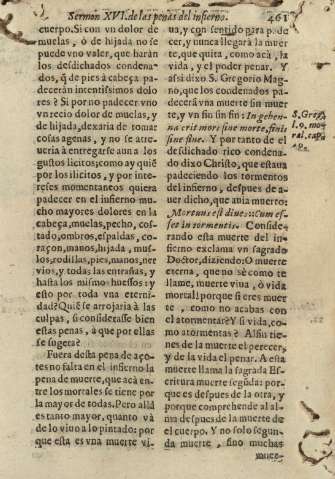 Sermon XVI. de las penas del infierno. 461
cuerpo. Si con vn dolor de
muelas, ò de hijada no se
puede vno valer, que harán
los desdichados condena-
dos, q̃ de pies à cabeça pa-
decerán intentissimos dolo
res? Si por no padecer vno
vn recio dolor de muelas, y
de hijada, dexaria de tomar
cosas agenas, y no se atre-
ueria à entregarse aun a los
gustos licitos; como ay quiẽ
por los ilicitos, y por inte-
reses momentaneos quiera
padecer en el infierno mu-
cho mayores dolores en la
cabeça, muelas, pecho, cos-
tado, ombros, espaldas, co-
raçon, manos, hijada, mus-
los, rodillas, pies, manos, ner
vios, y todas las entrañas, y
hasta los mismo huessos: y
esto por toda vna eterni-
dad? Quiẽ se arrojaria à las
culpas, si considerasse bien
estas penas, à que por ellas
se sugeta?
Fuera desta pena de aço-
tes no falta en el infierno la
pena de muerte, que acà en-
tre los mortales se tiene por
la mayor de todas. Pero allá
es tanto mayor, quanto và
de lo viuo a lo pintado: por
que esta es vna muerte vi-
ua, y con sentido para pade
cer, y nunca llegarà la muer
te, que quita, como acà, la
vida, y el poder penar. Y
assi dixo S. Gregorio Mag-
no, que los condenados pa-
decerá vna muerte sin muer
te, y vn fin sin fin: In gehen-
na erit mors sine morte, finis
sine fine. Y por tanto de el
desdichado rico condena-
do dixo Christo, que estaua
padeciendo los tormentos
del infierno, despues de a-
uer dicho, que auia muerto:
Mortuus est diues::: Cum es-
ses in tormentis. Conside-
rando esta muerte del in-
fierno exclama vn sagrado
Doctor, diziendo: O muerte
eterna, que no sè como te
llame, muerte viua, ò vida
mortal! porque si eres muer
te, como no acabas con
el atormentar? Y si vida, co-
mo atormentas? Al fin tie-
nes de la muerte el perecer,
y de la vida el penar. A esta
muerte llama la sagrada Es-
critura muerte segũda: por-
que es despues de la otra, y
porque comprehende al al-
ma despues de la muerte de
el cuerpo. Y no solo segun-
da muerte, sino muchas
S. Greg.
l. 9. mo-
ral. cap.